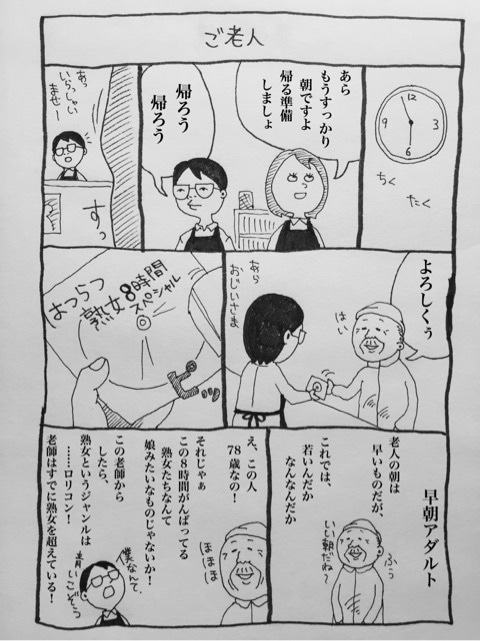 ご老人
12
3
6
9
ちく
たく
あら
もうすっかり
朝ですよ
帰る準備
しましょ
帰ろう
帰ろう
あっ
いらっしゃい
ませー
すっ
よろしくぅ
はい
あら
おじいさま
はつらつ
熟女8時間
スペシャル
早朝アダルト
老人の朝は
早いものだが、
これでは、
若いんだか
なんなんだか
ふぅ
いい朝だね〜
え、この人
78歳なの!
それじゃぁ
この8時間がんばってる
熟女たちなんて
娘みたいなものじゃないか!
この老師から
したら、
熟女というジャンルは
……ロリコン!
老師はすでに熟女を超えている!
ほほほ
僕なんて、
青いこぞう